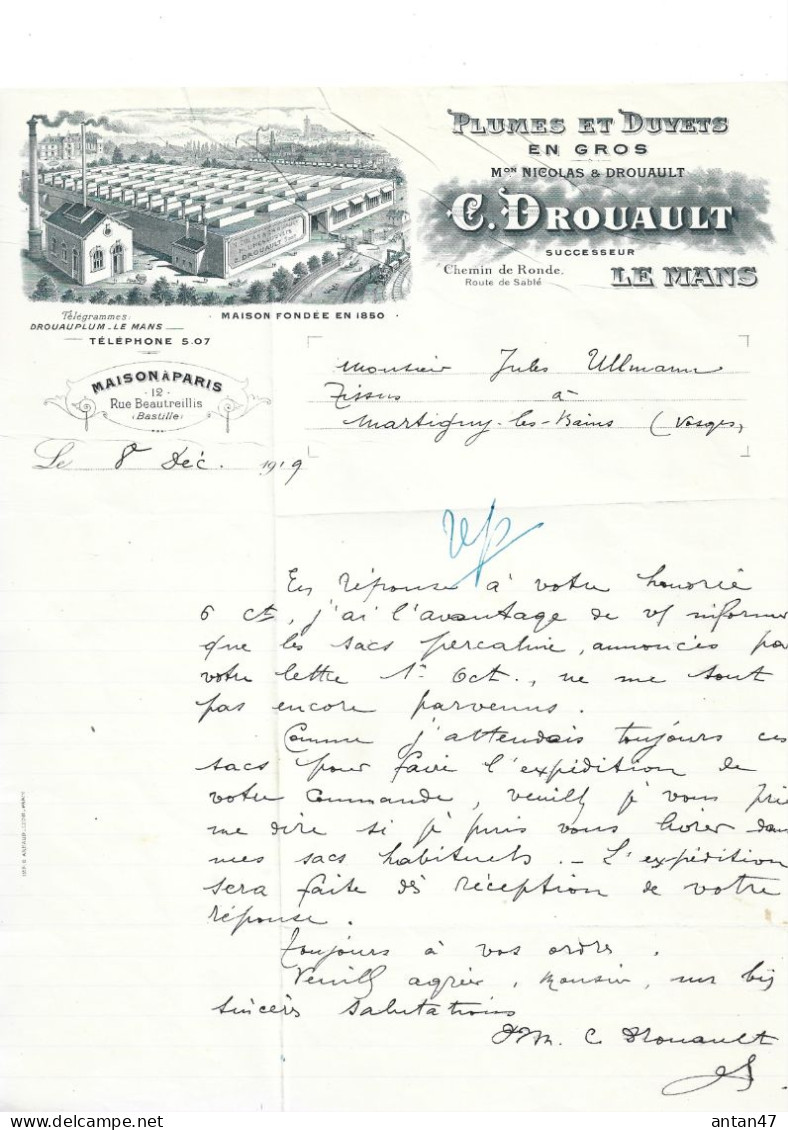 PLUMES ET DUVETS
EN GROS
MON NICOLAS & DROUAULT
C. DROUAULT
SUCCESSEUR
Chemin de Ronde.
Route de Sablé
LE MANS
Télégrammes:
DROUAUPLUM - LE MANS
TÉLÉPHONE 5.07
MAISON FONDÉE EN 1850
MAISON À PARIS
12
Rue Beautreillis
(Bastille)
Monsieur Jules Ullmann
Tissus à
Martigny-les-Bains (Vosges)
Le 8 Déc. 1919
rep
En réponse à votre honorée
6 ct, j'ai l'avantage de vs informer
que les sacs percaline, annoncés par
votre lettre 1er Oct., ne me sont
pas encore parvenus.
Comme j'attendais toujours ces
sacs pour faire l'expédition de
votre commande, veuillez je vous prie
me dire si je puis vous livrer dans
mes sacs habituels. - L'expédition
sera faite dès réception de votre
réponse.
Toujours à vos ordres.
Veuillez agréer, Monsieur, mes
sincères salutations
C. Drouault
delcampe.net
antan47